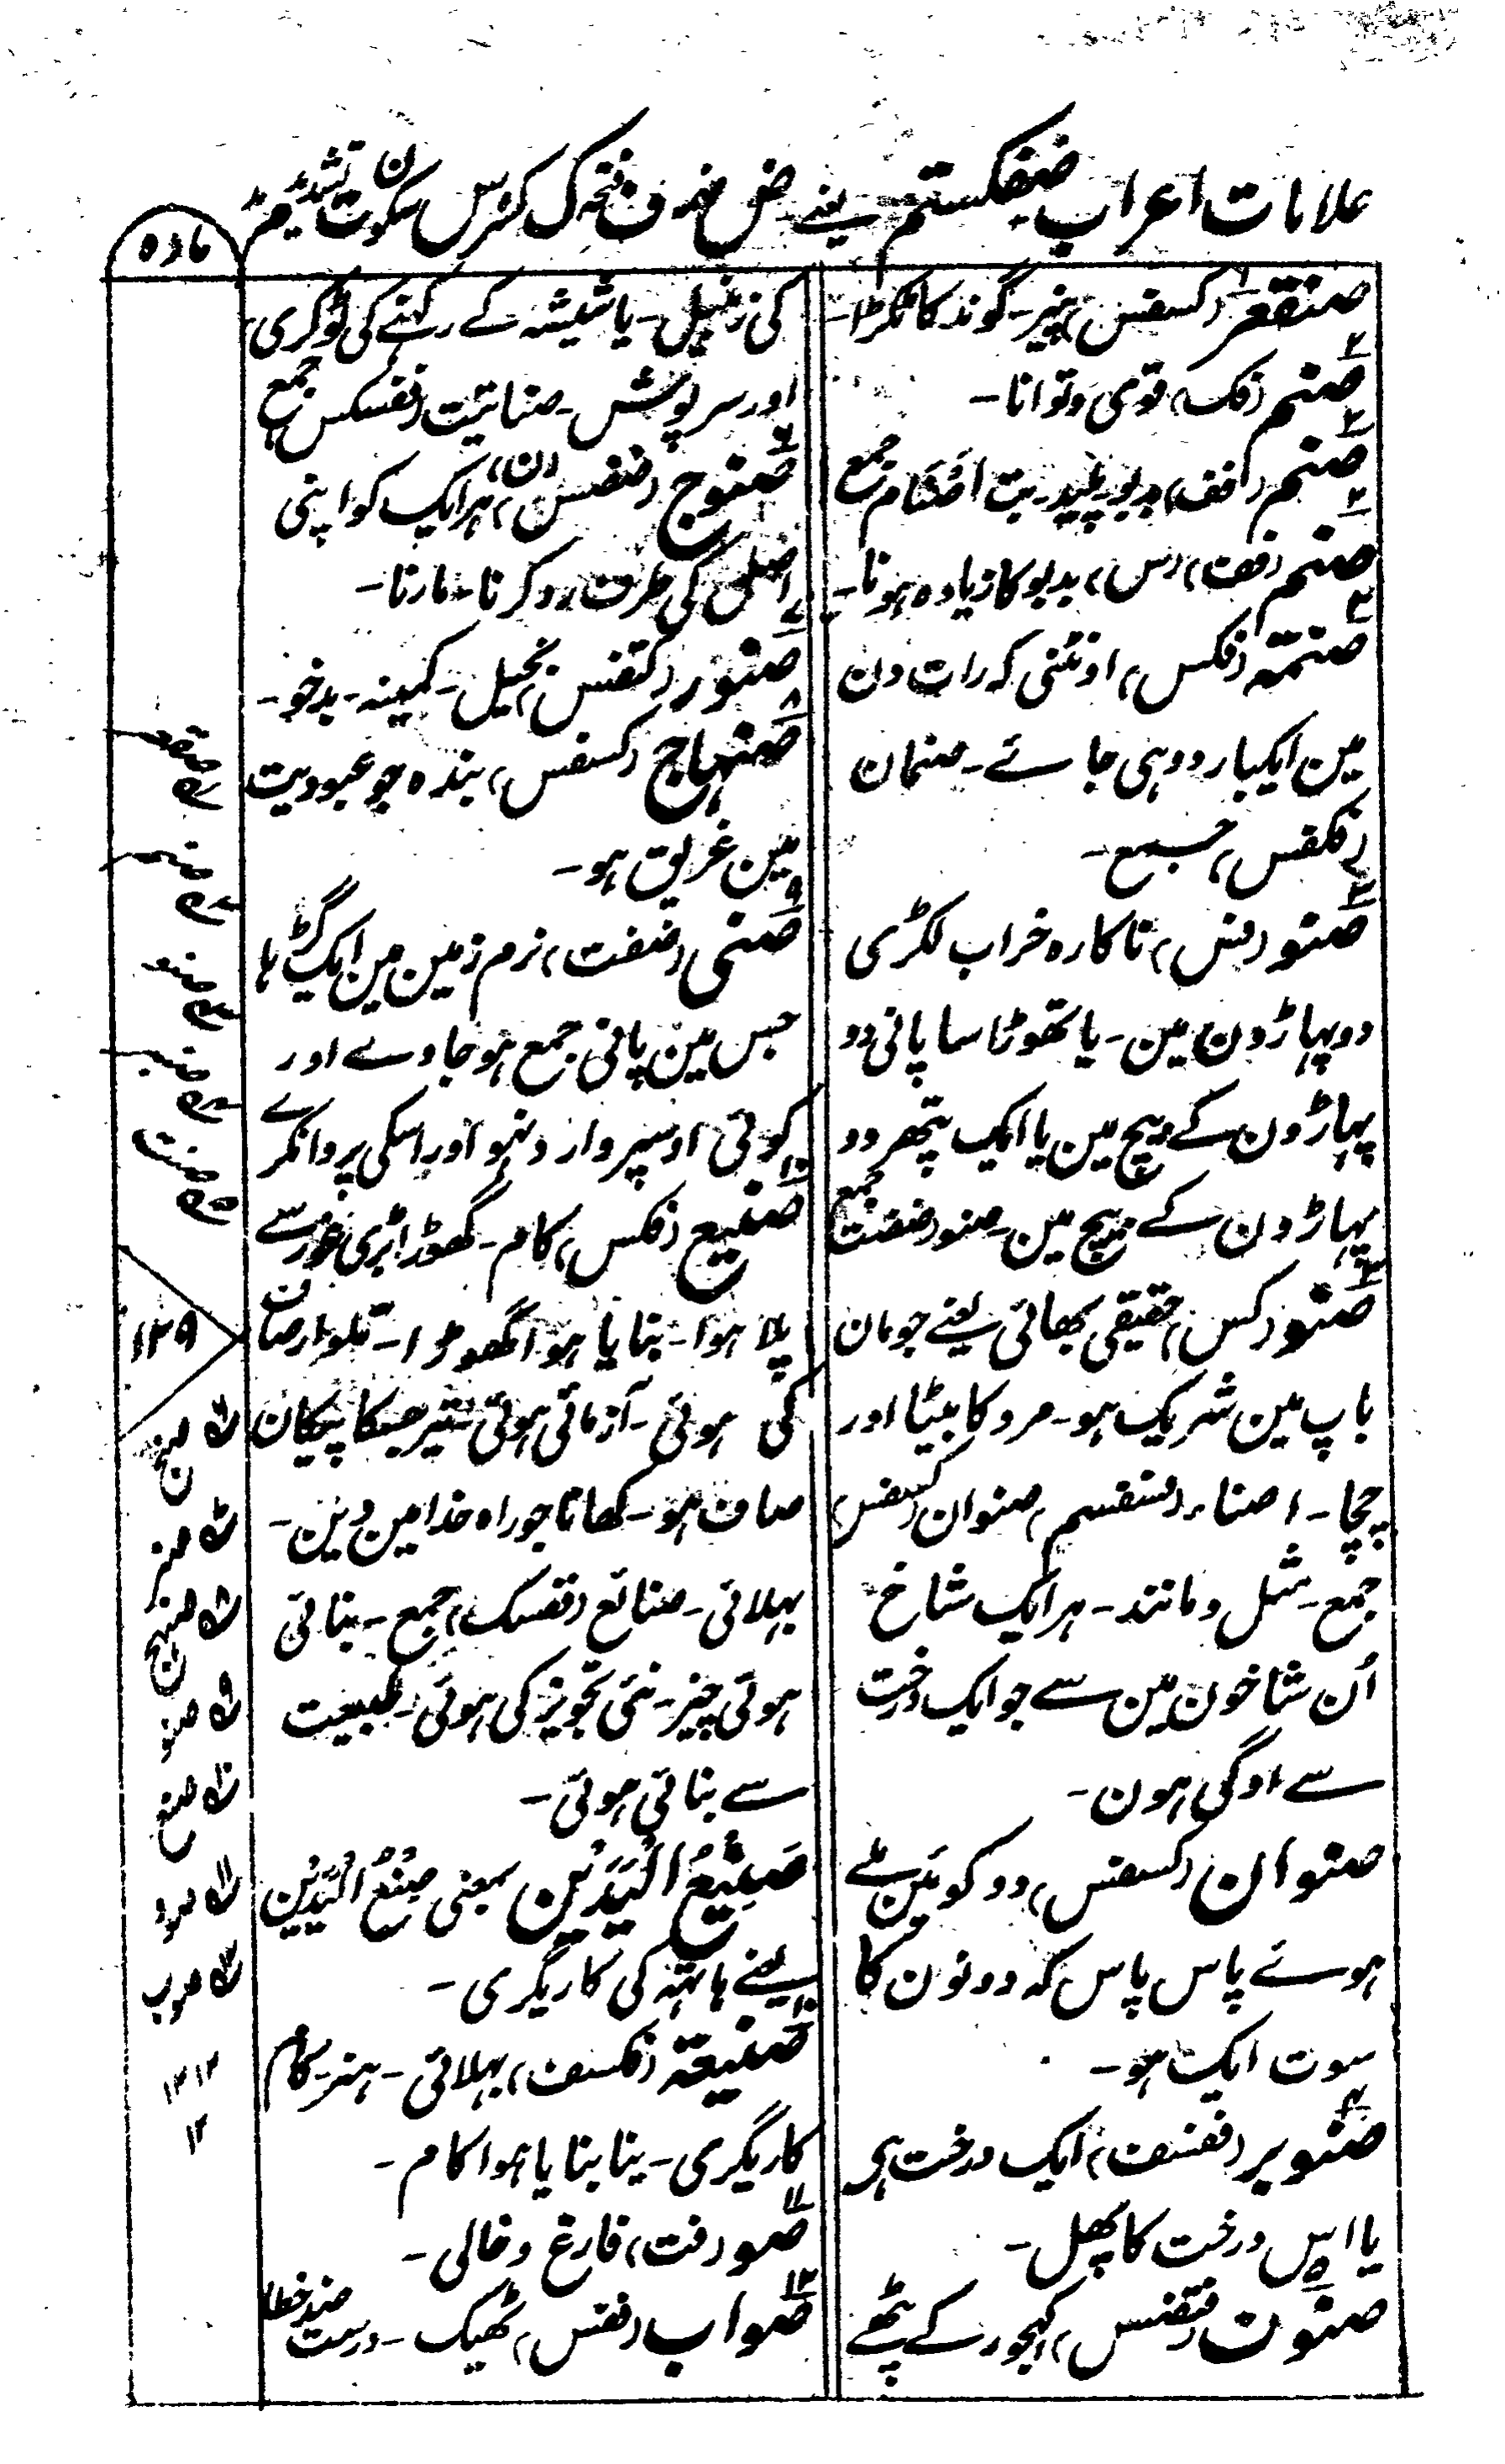 علامات اعراب ضفکستم یعنے ض ضمہ ف فتحہ ک کسرہ س سکون ت تشدید
مادہ
صنقعر (کسفس) پنیر۔ گوند کا ٹکڑا۔
صنم (فک) قوی و توانا۔
صنم (فف) بدبو۔ پلید۔ بت اَصْنَام جمع
صنم (فف) (س) بدبو کا زیادہ ہونا۔
صنمتہ (فکس) اونٹنی کہ رات دن
مین ایکبار دوہی جائے۔ صنمان
(فکفس) جمع۔
صنو (فس) ناکارہ خراب لکڑی
دو پہاڑون مین۔ یا تھوڑا سا پانی دو
پہاڑون کے بیچ مین یا ایک پتھر دو
پہاڑون کے بیچ مین۔ صنو (ضفت) جمع
صنو (کس) حقیقی بھائی یعنے جو مان
باپ مین شریک ہو۔ مرد کا بیٹا اور
چچا۔ اصناء (فسفسم) صنوان (کسفس)
جمع۔ مثل و مانند۔ ہر ایک شاخ
اُن شاخون مین سے جو ایک درخت
سے اوگی ہون۔
صنوان (کسفس) دو کوئین بنے
ہوئے پاس پاس کہ دونون کا
سوت ایک ہو۔
صنوبر (ففسف) ایک درخت ہی
یا اس درخت کا پھل۔
صنون (فتضس) کھجور کے پٹھے
کی زنبیل۔ یا شیشہ کے رکھنے کی ٹوکری
اور سرپوش۔ صنانیت (ففسکس) جمع
صنوج (ضضس) (ن) ہر ایک کو اپنی
اصلی کی طرف رد کرنا۔ مارنا۔
صنور (کتفس) بخیل۔ کمینہ۔ بدخو۔
صنہاج (کسفس) بندہ جو عبودیت
مین غریق ہو۔
صنی (ضفت) نرم زمین مین ایک گڑہا
جس مین پانی جمع ہو جاوے اور
کوئی اوسپر وارد نہو اور اسکی پروا نکرے
صنیع (فکس) کام۔ گھوڑا بڑی غور سے
پلا ہوا۔ بنایا ہوا گھوڑا۔ تلوار صاف
کی ہوئی۔ آزمائی ہوئی تیر جسکا پیکان
صاف ہو۔ کھانا جو راہ خدا مین دین۔
بہلائی۔ صنائع (ففسک) جمع۔ بنائی
ہوئی چیز۔ نئی تجویز کی ہوئی۔ طبیعت
سے بنائی ہوئی۔
صَنِیْعُ الْیَدَیْنِ بمعنی صِنْعُ الْیَدَیْنِ
یعنے ہاتہہ کی کاریگری۔
صنیعۃ (فکسف) بہلائی۔ ہنر۔ کام
کاریگری۔ بنا بنایا ہوا کام۔
صو (فت) فارغ و خالی۔
صواب (ففس) ٹھیک۔ درست ضد خطا
۱ صقعر
۲ صنم
۳ صنو
۴ صنبر
۵ صنت
۱۲۹
۶ صنج
۷ صنر
۸ صنہج
۹ صنو
۱۰ صنع
۱۱ صود
۱۲ صوب
۱۲ ۱۲
۱۲